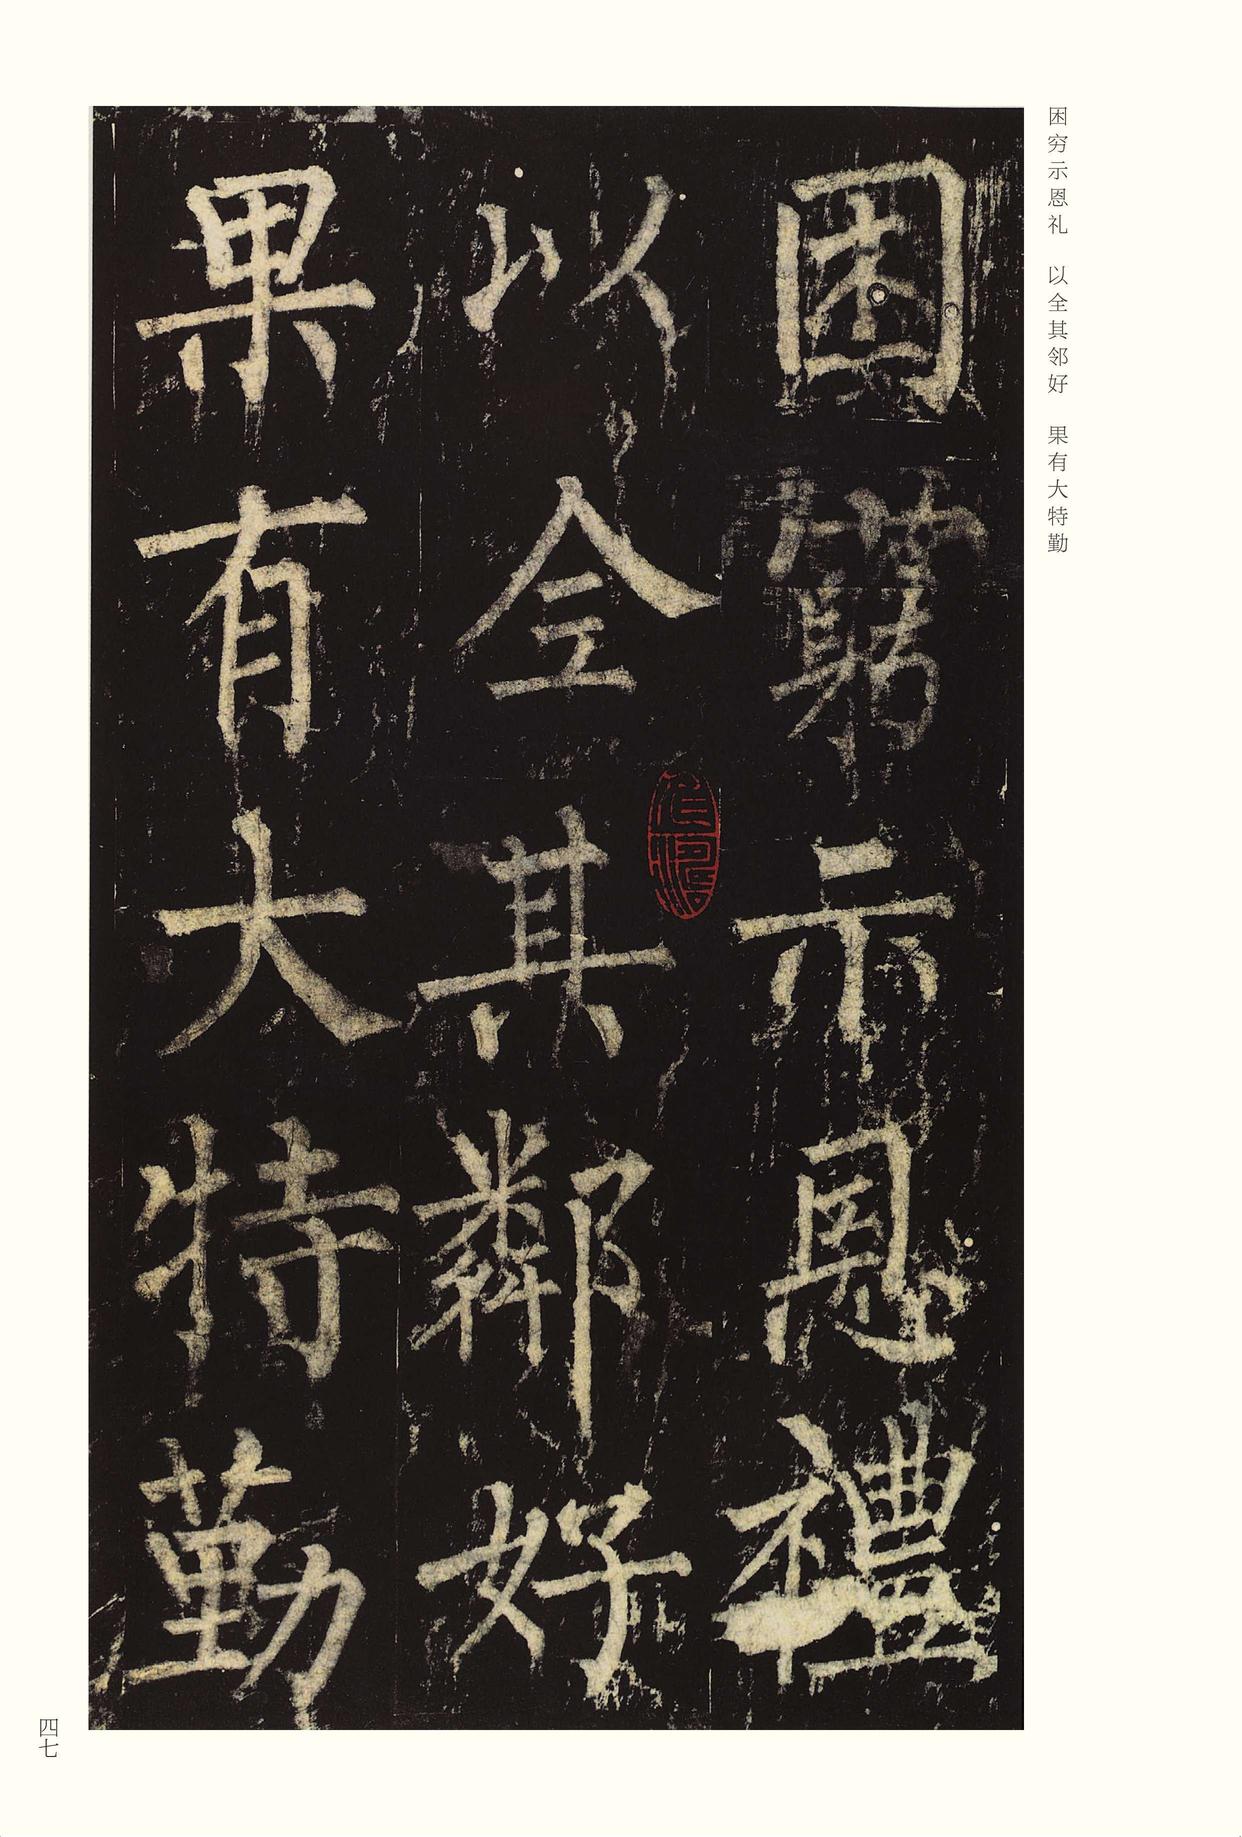 困穷示恩礼 以全其邻好 果有大特勤
困窮示恩禮
以全其鄰好
果有大特勤
四七